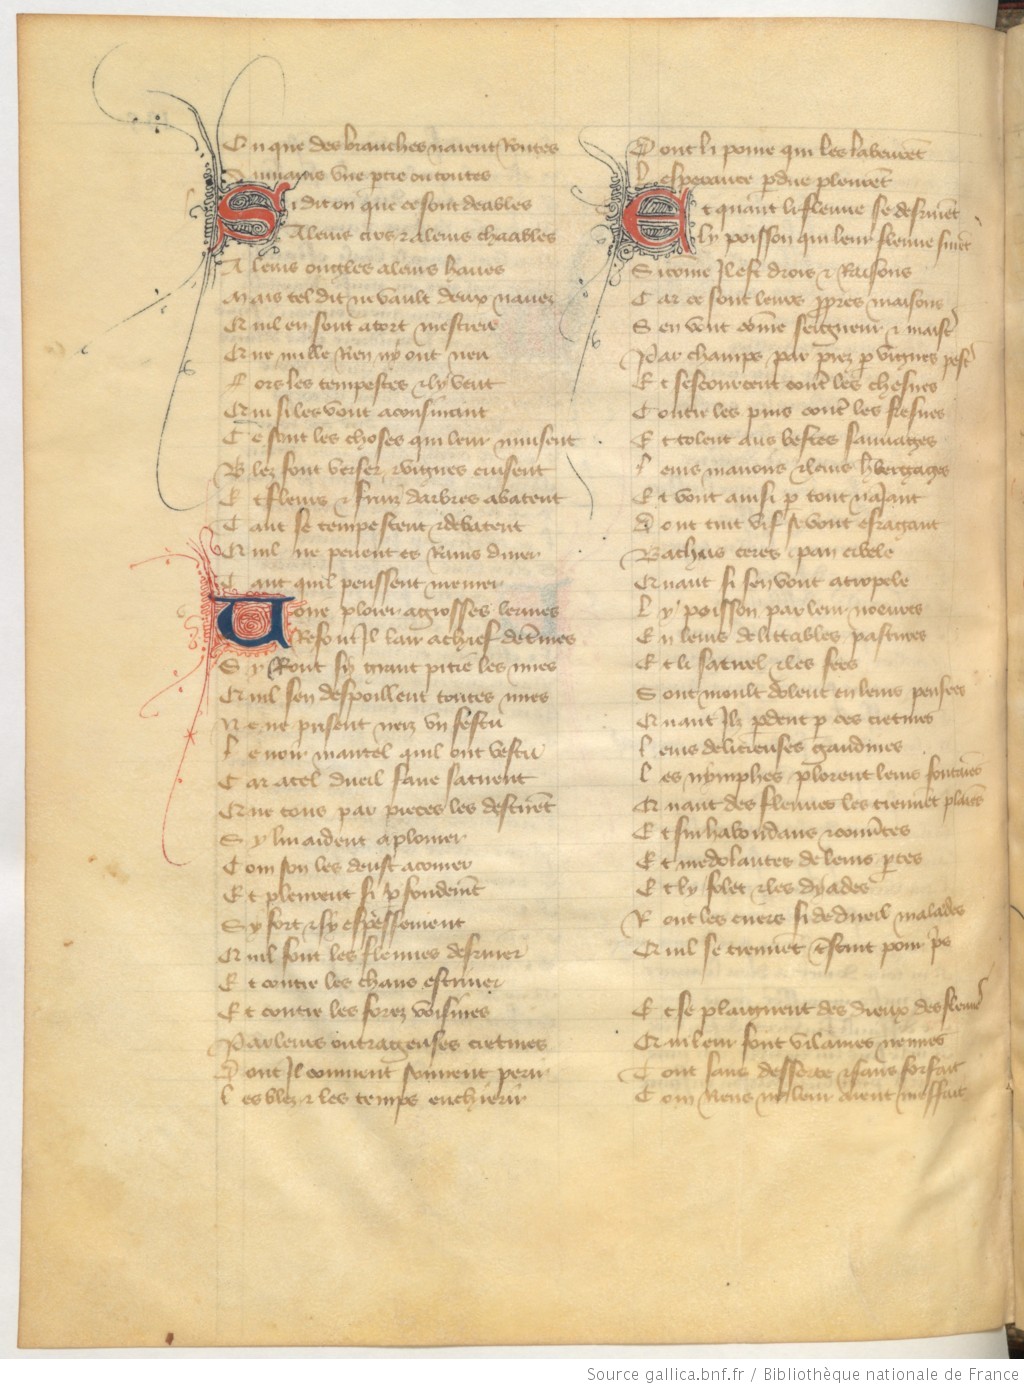 Ou que des branches naient Routes
Aumains vne ptie ou toutes
Si dit on que ce sont deables
A leurs cros r aleurs chaables
A leurs ougles aleurs haues
Mais tel dit ne vault deux nauez
Quil en sont atort mescreu
Que nulle Rien ny ont neu
Fors les tempestes r ly vent
Qui si les vont aconsiuant
Ce sont les choses qui leur nuisent
Blez font verser r vignes cuisent
Et fleurs r fruiz darbres abatent
Tant se tempestent r debatent
Quil ne peuent es Rains durer
Tant quil peussent meurer
Uoire plorer agrosses lermes
Refont Il lair achief de tmes
Sy Ront sy grant pitie les nues
Quil sen despoillent toutes nues
Ne ne prisent neiz vn festu
Le noir mantel quil ont vestu
Car atel dueil faire satirent
Que tous par pieces les descirēt
Sy lui aident aplorer
Com son les deust acorer
Et pleurent si pfondemēt
Sy fort r sy espessement
Quil font les fleuues desriuer
Et contre les chans estriuer
Et contre les forez voisines
Par leurs outrageuses cretines
Dont Il conuient souuent perir
Les blez r les temps encherir
Dont li poure qui les labeurēt
Lesperance pdue pleurēt
Et quant li fleuue se desriuēt
Ly poisson qui leur fleuue siuēt
Si come Il est drois r Raisons
Car ce sont leurs ppres maisons
Sen vont cōme seigneur r maist
Par champs par prez p vignes pest
Et sescourcent contē les chesnes
Contre les pins contē les fresnes
Et tolent aus bestes sauuages
Leurs manoirs r leurs hbergages
Et vont ainsi p tout naiant
Dont tuit vif se vont esragant
Bachus ceres pan cibele
Quant si sen vont atropele
Ly poisson par leur noeures
En leurs delittables pastures
Et li satirel r les fees
Sont moult dolent en leurs pensees
Quant Ilz pdent p ces cretines
Leurs delicieuses gaudines
Les nymphes plorent leurs fontaines
Quant des fleuues les treuuēt plaines
Et surhabondans r couuertes
Et me dolantes de leurs ptes
Et ly folet r les dyades
Ront les cuers si de dueil malades
Quil se tiennēt trestuit pour pis
Et se plaignent des dieux des fleuues
Qui leur font vilanies neuues
Tout sans desserte r sans forfait
Com Riens ne leur aient meffait